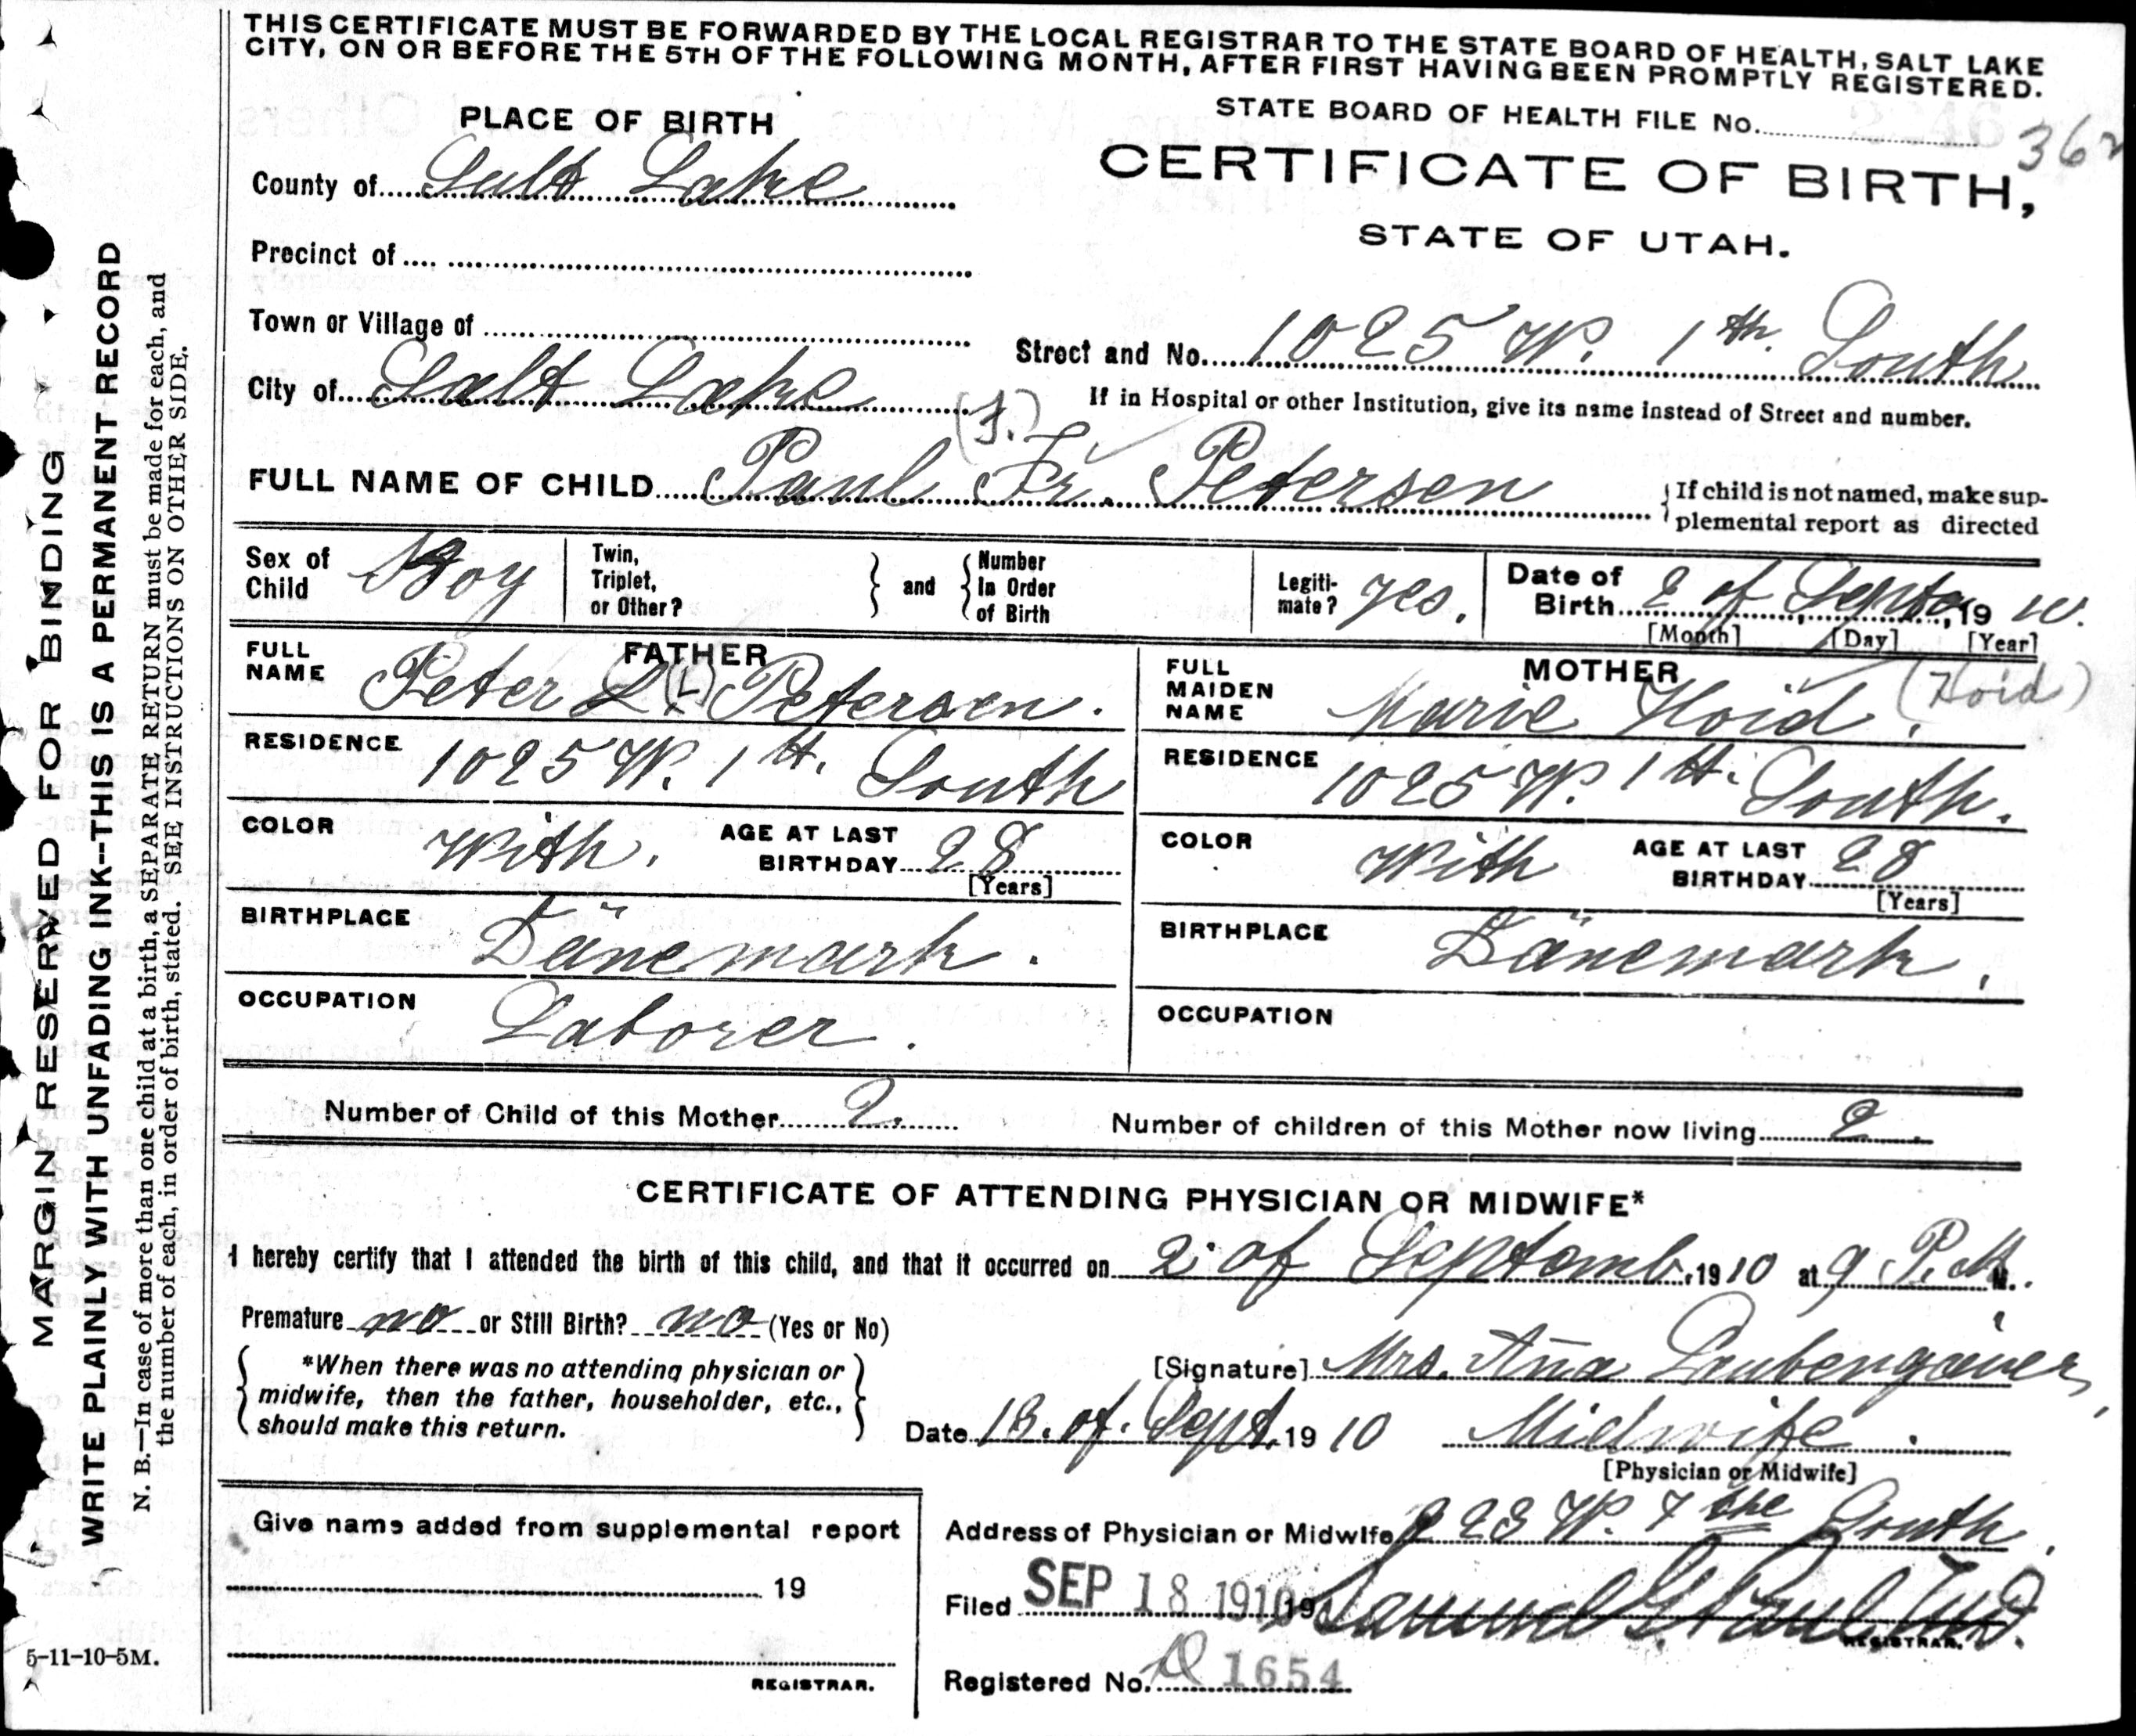 THIS CERTIFICATE MUST BE FORWARDED BY THE LOCAL REGISTRAR TO THE STATE BOARD OF HEALTH, SALT LAKE
CITY, ON OR BEFORE THE 5TH OF THE FOLLOWING MONTH, AFTER FIRST HAVING BEEN PROMPTLY REGISTERED.
PLACE OF BIRTH
STATE BOARD OF HEALTH FILE No.
362
CERTIFICATE OF BIRTH,
STATE OF UTAH.
County of Salt Lake
Precinct of
Town or Village of
Street and No. 1025 W. 1th. South
City of Salt Lake
If in Hospital or other Institution, give its name instead of Street and number.
FULL NAME OF CHILD Paul Fr. Petersen
If child is not named, make sup-
plemental report as directed
Sex of Child Boy
Twin, Triplet, or Other?
and
Number In Order of Birth
Legiti-mate? yes.
Date of Birth 2 of Septb, 19 10.
[Month] [Day] [Year]
FATHER
FULL NAME Peter L. (L) Petersen.
RESIDENCE 1025 W. 1 th. South
COLOR With.
AGE AT LAST BIRTHDAY 28
[Years]
BIRTHPLACE Dänemark.
OCCUPATION Laborer.
MOTHER
FULL MAIDEN NAME Marie Hoid. (Hoid)
RESIDENCE 1025 W. 1 th. South.
COLOR With
AGE AT LAST BIRTHDAY 28
[Years]
BIRTHPLACE Dänemark.
OCCUPATION
Number of Child of this Mother 2.
Number of children of this Mother now living 2.
CERTIFICATE OF ATTENDING PHYSICIAN OR MIDWIFE*
I hereby certify that I attended the birth of this child, and that it occurred on 2. of Septemb. 1910 at 9 P. M.
Premature no or Still Birth? no (Yes or No)
*When there was no attending physician or
midwife, then the father, householder, etc.,
should make this return.
[Signature] Mrs. Aña Laubengaier,
Date 18. of. Sept. 1910 Midwife.
[Physician or Midwife]
Give name added from supplemental report
19
REGISTRAR.
Address of Physician or Midwife 223 W. 7 the South.
Filed SEP 18 1910 19
REGISTRAR.
Registered No. 1654
MARGIN RESERVED FOR BINDING
WRITE PLAINLY WITH UNFADING INK--THIS IS A PERMANENT RECORD
N. B.—In case of more than one child at a birth, a SEPARATE RETURN must be made for each, and
the number of each, in order of birth, stated. SEE INSTRUCTIONS ON OTHER SIDE.
5-11-10-5M.